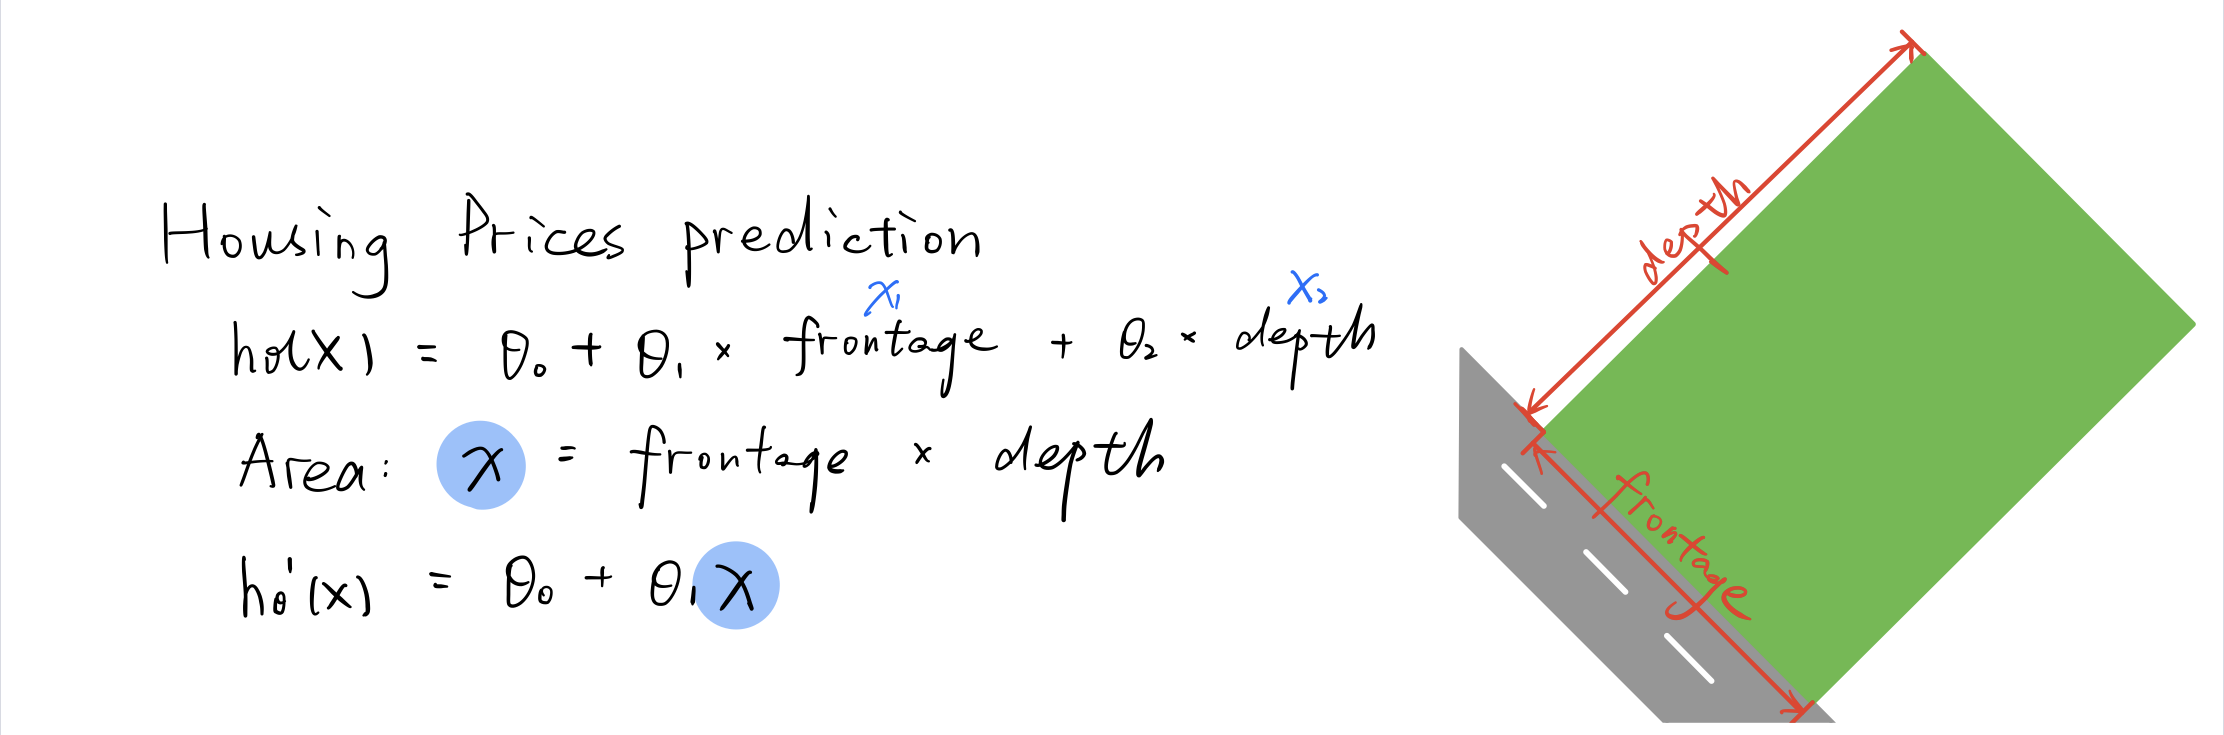 Housing Prices prediction
x₁ x₂
hθ(x) = θ₀ + θ₁ × frontage + θ₂ × depth
Area: x = frontage × depth
hθ'(x) = θ₀ + θ₁ x
depth
frontage